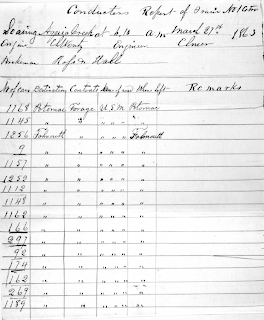 Conductors Report of Train No 1 Extra
Leaving Acquia Creek at 6.10 a.m March 27th 1863
Engine Engineer
Brakeman Ross & Hall
No of cars Destination Contents Where from Where left Remarks
1168 Potomac Forage U S M Potomac
1145 " " " " " "
1256 Falmouth " " " " Falmouth
9 " " " " " "
1157 " " " " " "
1252 " " " " " "
1112 " " " " " "
1148 " " " " " "
1162 " " " " " "
166 " " " " " "
297 " " " " " "
92 " " " " " "
174 " " " " " "
162 " " " " " "
269 " " " " " "
1189 " " " " " "